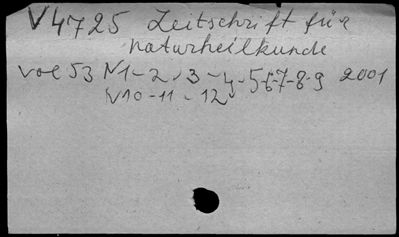 V4725 Zeitschrift für
naturheilkunde
vol 53 N1-2-3-4-5-6-7-8-9 2001
N10-11-12